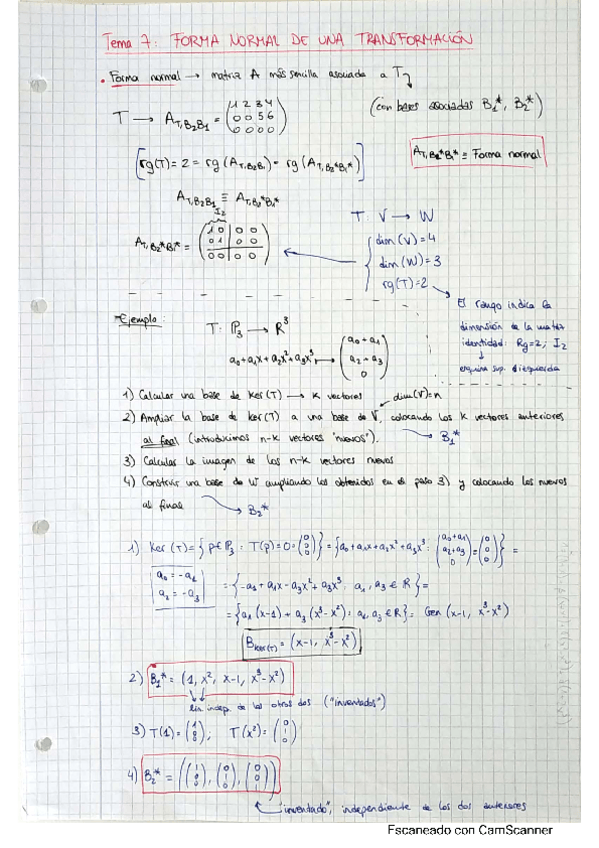 Tema 7: FORMA NORMAL DE UNA TRANSFORMACIÓN
• Forma normal → matriz A más sencilla asociada a T
(con bases asociadas B₁*, B₂*)
T → A_T,B₂B₁ = (1 2 3 4 / 0 0 5 6 / 0 0 0 0)
[rg(T) = 2 = rg(A_T,B₂B₁) = rg(A_T,B₂*B₁*)]
A_T,B₂*B₁* ≡ Forma normal
A_T,B₂B₁ ≡ A_T,B₂*B₁*
I₂
A_T,B₂*B₁* = (1 0 | 0 0 / 0 1 | 0 0 / 0 0 | 0 0)
T V → W
dim(V) = 4
dim(W) = 3
rg(T) = 2
El rango indica la
dimensión de la matriz
identidad: Rg=2; I₂
↓
esquina sup. izquierda
Ejemplo:
T: P₃ → R³
a₀+a₁x+a₂x²+a₃x³ → (a₀+a₁ / a₂+a₃ / 0)
1) Calcular una base de Ker(T) → K vectores
dim(V)=n
2) Ampliar la base de Ker(T) a una base de V, colocando los K vectores anteriores
al final (introducimos n-k vectores "nuevos").
→ B₁*
3) Calcular la imagen de los n-k vectores nuevos
4) Construir una base de W ampliando los obtenidos en el paso 3) y colocando los nuevos
al final
→ B₂*
1) Ker(T) = {p∈P₃ : T(p)=0=(0 / 0 / 0)} = {a₀+a₁x+a₂x²+a₃x³ : (a₀+a₁ / a₂+a₃ / 0) = (0 / 0 / 0)} =
a₀ = -a₁
a₂ = -a₃
= {-a₁+a₁x-a₃x²+a₃x³ : a₁, a₃ ∈ R} =
= {a₁(x-1)+a₃(x³-x²) : a₁, a₃ ∈ R} = Gen(x-1, x³-x²)
B_Ker(T) = (x-1, x³-x²)
2) B₁* = (1, x², x-1, x³-x²)
lin. indep. de los otros dos ("inventados")
3) T(1) = (1 / 0 / 0); T(x²) = (0 / 1 / 0)
4) B₂* = ((1 / 0 / 0), (0 / 1 / 0), (0 / 0 / 1))
"inventado", independiente de los dos anteriores
Escaneado con CamScanner